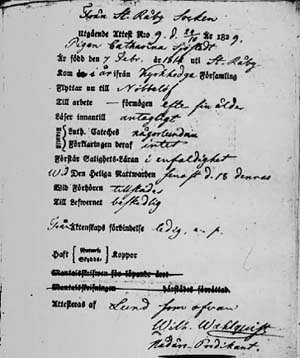 Från St. Råby Socken
Utgående Attest Nro 9. d. 24/10 År 1829.
Pigan Catharina Sjöstedt
Är född den 7 Febr. år 1814 uti St. Råby
Kom i år ifrån Kyrkheddinge Församling
Flyttar nu till Nöbbelöf
Till arbete — förmögen efter sin ålder
Läser innantill antagligt
Luth. Cateches någorlunda
Förklaringen deraf intet
Förstår Salighets-Läran i enfaldighet
Wid Den Heliga Nattwarden senast d. 18 dennes
Wid Förhören tillstädes
Till Lefwernet beskedlig
Från Äktenskaps förbindelse ledig, u. p.
Haft Naturl. Skydds- Koppor
Mantalsskrifwen för löpande året
Mantalsskrifningen härstädes förrättad.
Attesteras af Lund som ofvan
Wilh. Wahlquist
Nådårs-Predikant.